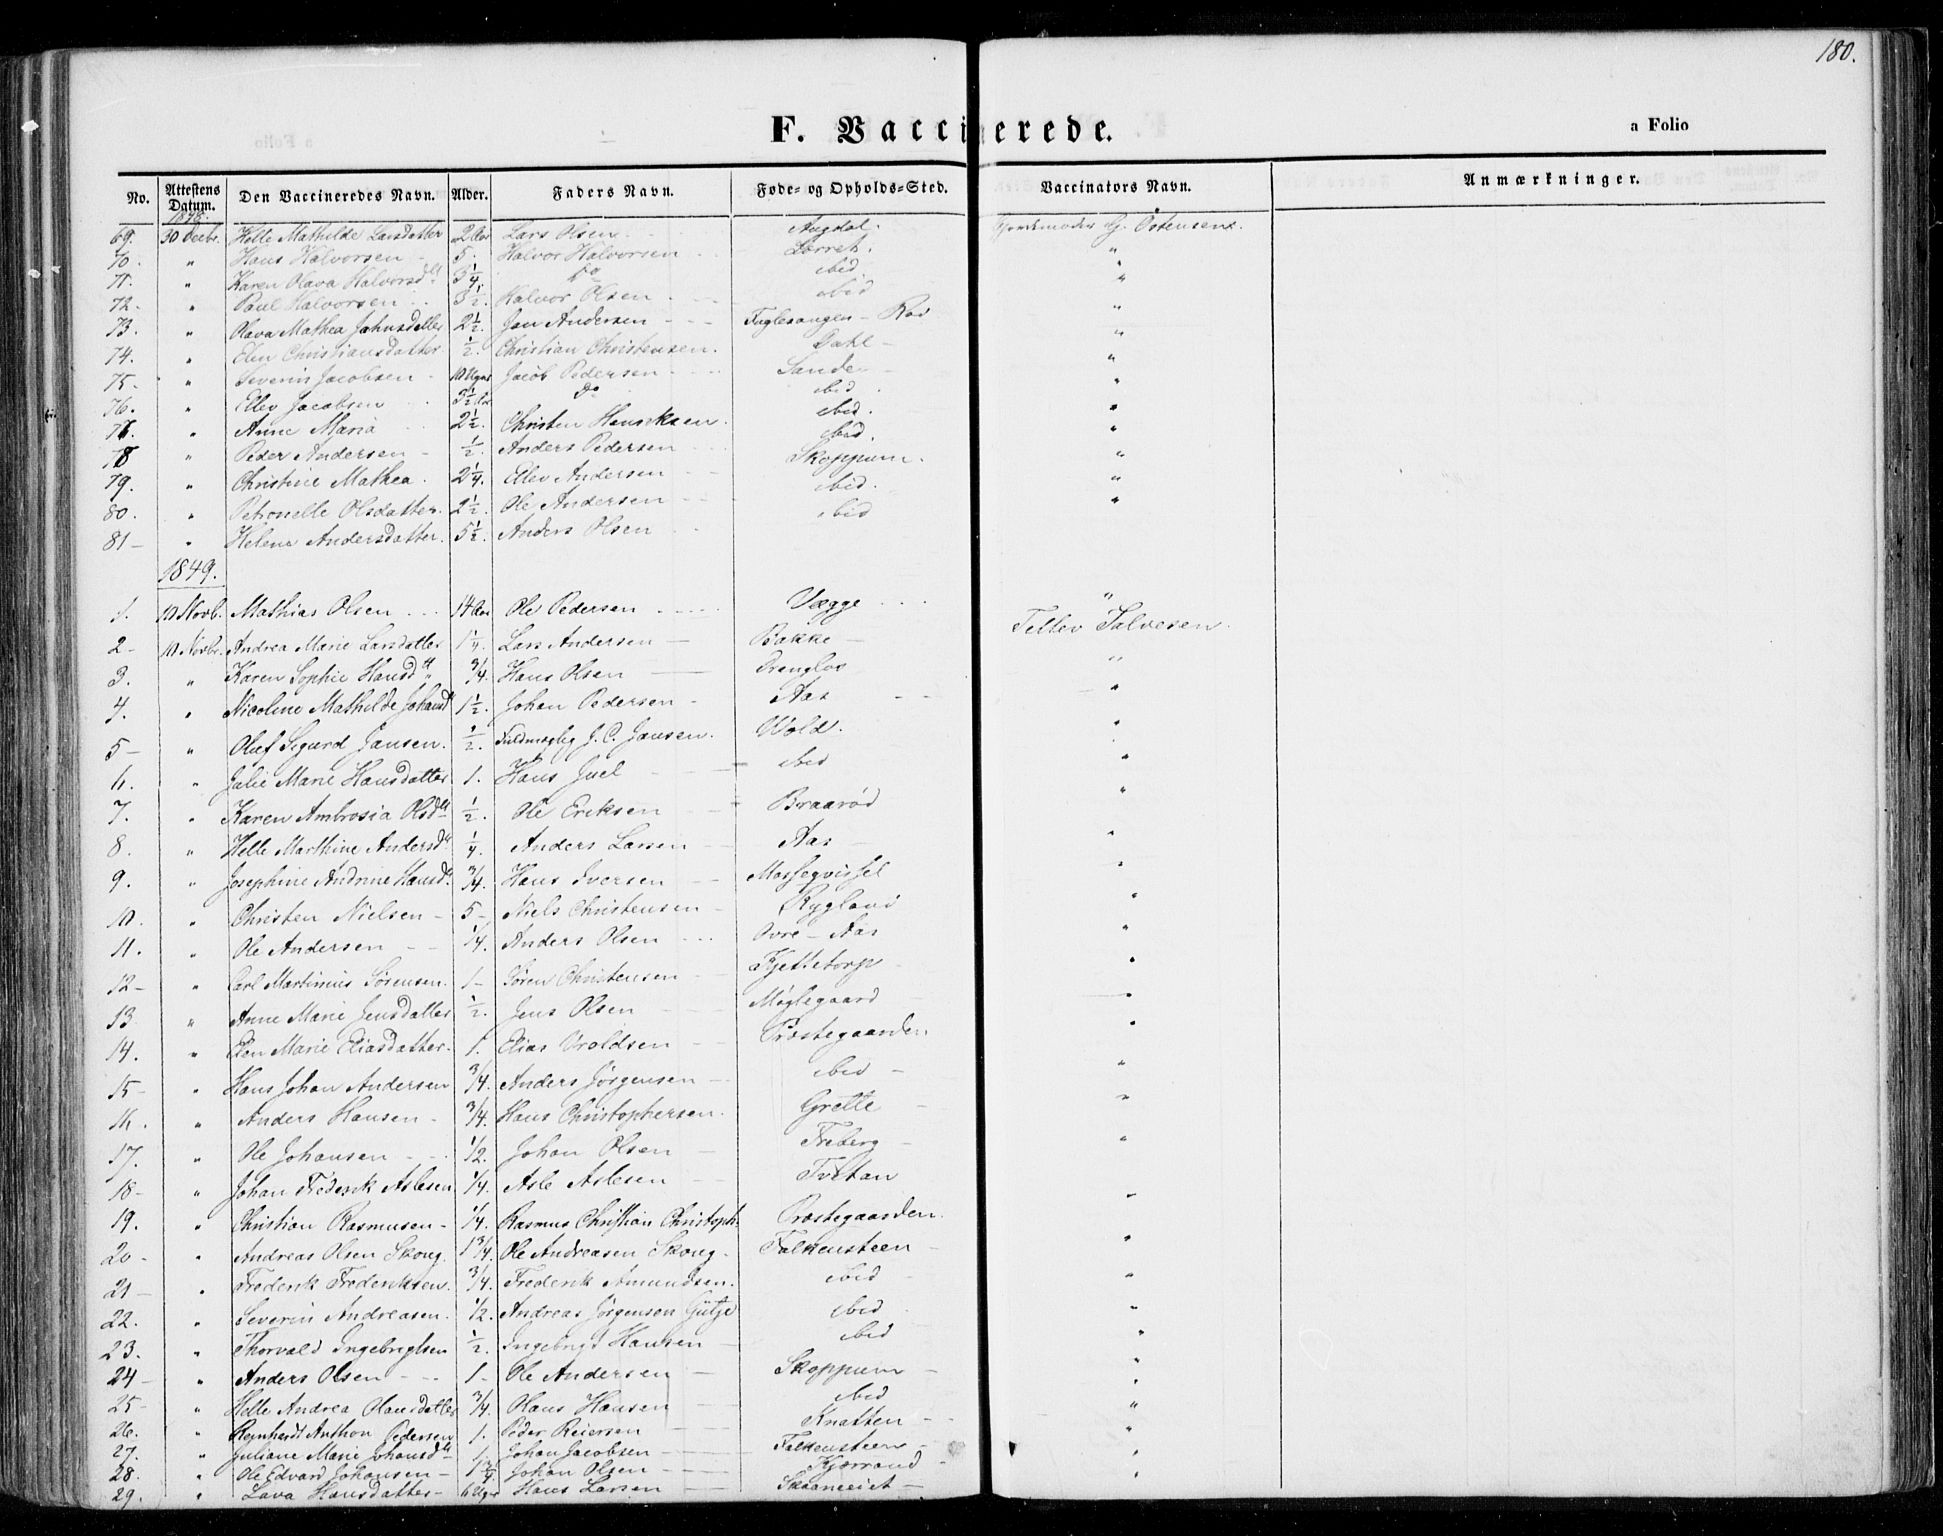 180.
F. Vaccinerede.
a Folio
No. Attestens Datum. Den Vaccineredes Navn. Alder. Faders Navn. Føde- og Opholds-Sted. Vaccinators Navn. Anmærkninger.
1848.
69. 30 Decbr. Helle Mathilde Larsdatter 2 Aar Lars Olsen Augdal. G. Ostensens.
70. " Hans Halvorsen 5. Halvor Halvorsen Lørret. "
71. " Karen Olava Halvorsdtt 3 1/4 do ibid "
72. " Paul Halvorsen 3 1/2. Halvor Olsen ibid "
73. " Olava Mathea Jahnsdatter 2 1/2. Jan Andersen Fuglesangen - Rød "
74. " Elen Christiansdatter 1/2. Christian Christensen. Dahl - "
75. " Severin Jacobsen - 10 Uger Jacob Pedersen Sande - "
76. " Ellev Jacobsen 3 1/2 Aar Do ibid. "
77. " Anne Maria 2 1/2. Christen Henriksen. ibid. "
78 " Peder Andersen - 1/2. Anders Pedersen ibid. "
79. " Christine Mathea. 2 1/4. Ellev Andersen Skoppum. "
80. " Petronelle Olsdatter. 2 1/2. Ole Andersen ibid. "
81 - " Helene Andersdatter. 5 1/2. Anders Olsen ibid "
1849.
1. 10 Novb. Mathias Olsen 14 Aar Ole Pedersen Vægge "
2 - 10 Novbr. Andrea Marie Larsdatter 1 1/4. Lars Andersen Bakke - Tellev Salvesen.
3. " Karen Sophie Hansdtt 3/4. Hans Olsen "
4. " Nicoline Mathilde Johansd 1 1/2. Johan Pedersen - Aas "
5 - " Oluf Sigurd Jansen. 1/2. Fuldmægtig J. C. Jansen. Wold. "
6. " Julie Marie Hansdatter 1. Hans Juel ibid "
7. " Karen Ambrosia Olsdtt 1/2. Ole Eriksen Braarød "
8. " Helle Marthine Andersdt 1/4. Anders Larsen Aas "
9. " Josephine Andrine Hansd. 3/4. Hans Iversen "
10. " Christen Nielsen - 5 - Niels Christensen Rygland "
11. " Ole Andersen 1/4. Anders Olsen Ovre - Aas "
12 - " Carl Martinius Sørensen. 1 - Søren Christensen Kjettetorp "
13 " Anne Marie Jensdatter 1/2. Jens Olsen Møglegaard "
14. " Elen Marie Eliasdatter. 1. Elias Vroldsen Præstegaarden "
15 - " Hans Johan Andersen 3/4. Anders Jørgensen ibid - "
16. " Anders Hansen - 3/4. Hans Christophersen. Grette "
17. " Ole Johansen 1/2. Johan Olsen Freberg - "
18 - " Johan Frederik Aslesen 1/4. Asle Aslesen Tvetan
19. " Christian Rasmusen - 1/4. Rasmus Christian Christoph. Præstegaarden. "
20 - " Andreas Olsen Skoug. 1 3/4. Ole Andreasen Skoug - Falkensteen - "
21 - " Frederik Frederiksen. 3/4. Frederik Amundsen. ibid "
22. " Severin Andreasen. 1/2. Andreas Jørgensen Gutze ibid "
23. " Thorvald Ingebrigtsen 1/2. Ingebrigt Hansen ibid "
24 - " Anders Olsen 1 - Ole Andersen Skoppum - "
25 - " Helle Andrea Olausdatter 3/4. Olaus Hansen ibid "
26. " Reinhardt Anthon Pedersen 1. Peder Reiersen Knatten - "
27. " Juliane Marie Johansdtt 1. Johan Jacobsen Falkensteen - "
28. " Ole Edvard Johansen - 1 3/4. Johan Olsen Kjærrand - "
29. " Lava Hansdatter - 6 Uger Hans Larsen "